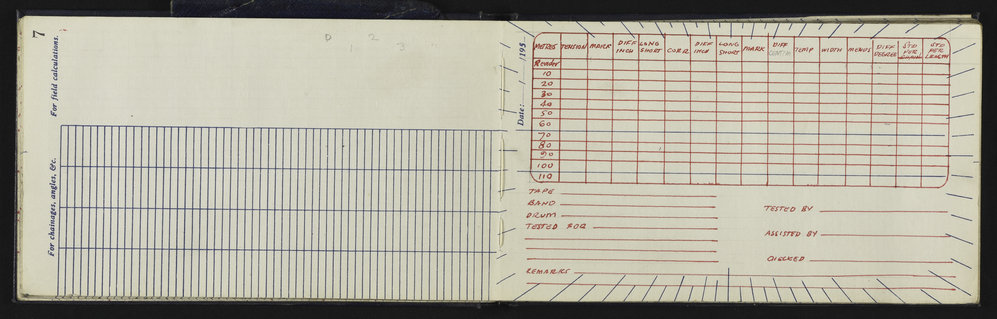 7
For field calculations.
D 2
1 3
For chainages, angles, &c.
Date:
METRES TENSION MAKER DIFF INCH LONG SHORT CORR DIFF INCH LONG SHORT MARK DIFF TEMP WIDTH MENUS DIFF DEGREE STD PER STD PER LENGTH
Reader
10
20
30
40
50
60
70
80
90
100
110
TAPE
BAND
DRUM
TESTED FOR
REMARKS
TESTED BY
ASSISTED BY
CHECKED